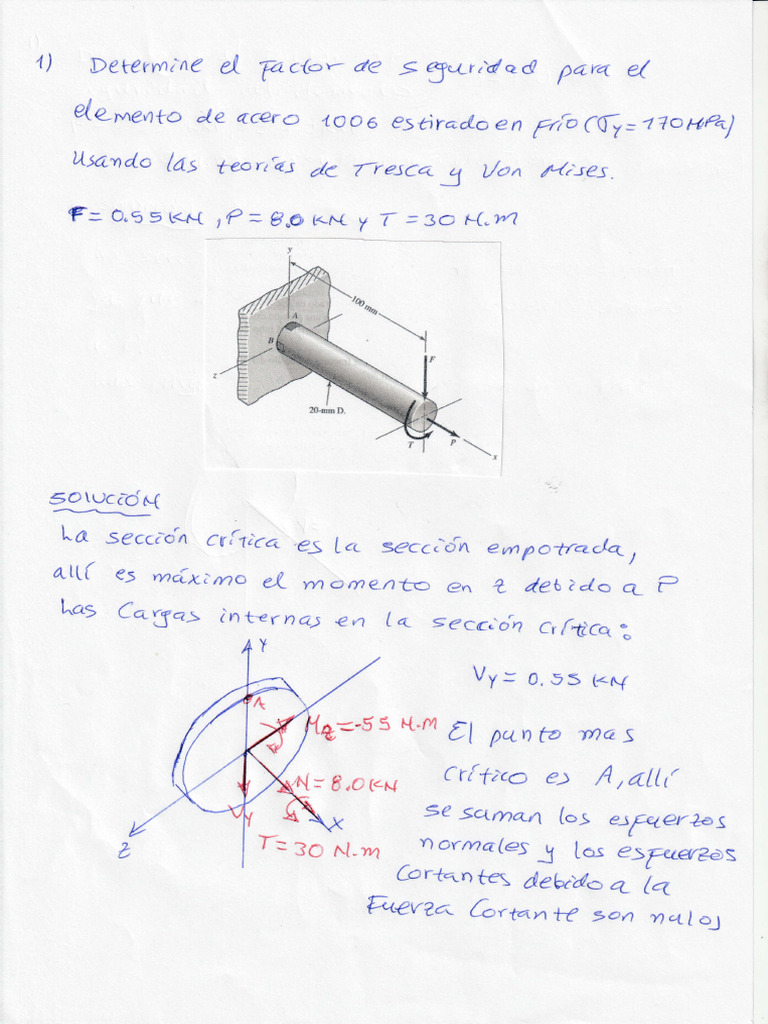 1) Determine el Factor de seguridad para el
elemento de acero 1006 estirado en frío (σy = 170 MPa)
Usando las teorías de Tresca y Von Mises.
F = 0.55 KN, P = 8.0 KN y T = 30 N.m
y
100 mm
A
B
F
z
20-mm D.
T
P
x
SOLUCIÓN
La sección crítica es la sección empotrada,
allí es máximo el momento en z debido a P
Las Cargas internas en la sección crítica:
Y
Vy = 0.55 KN
A
Mz = -55 N.m
El punto mas
N = 8.0 KN
crítico es A, allí
Vy
X
se suman los esfuerzos
Z
T = 30 N.m
normales y los esfuerzos
Cortantes debido a la
Fuerza Cortante son nulos